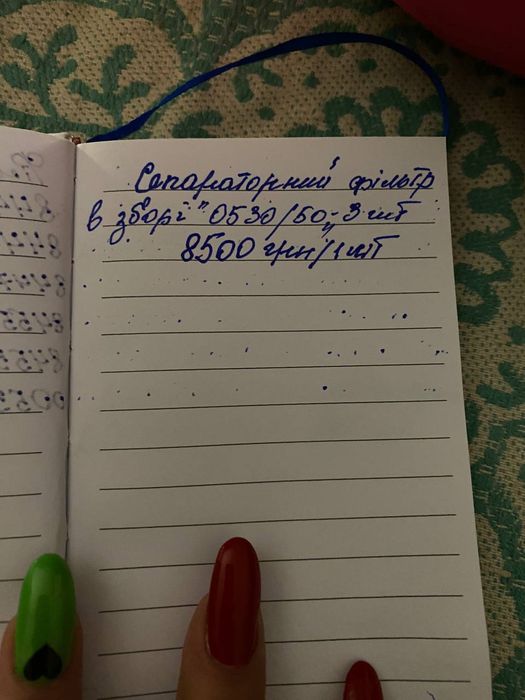 Сепараторний фільтр
в зборі "0530/50" - 3 шт
8500 грн/1 шт